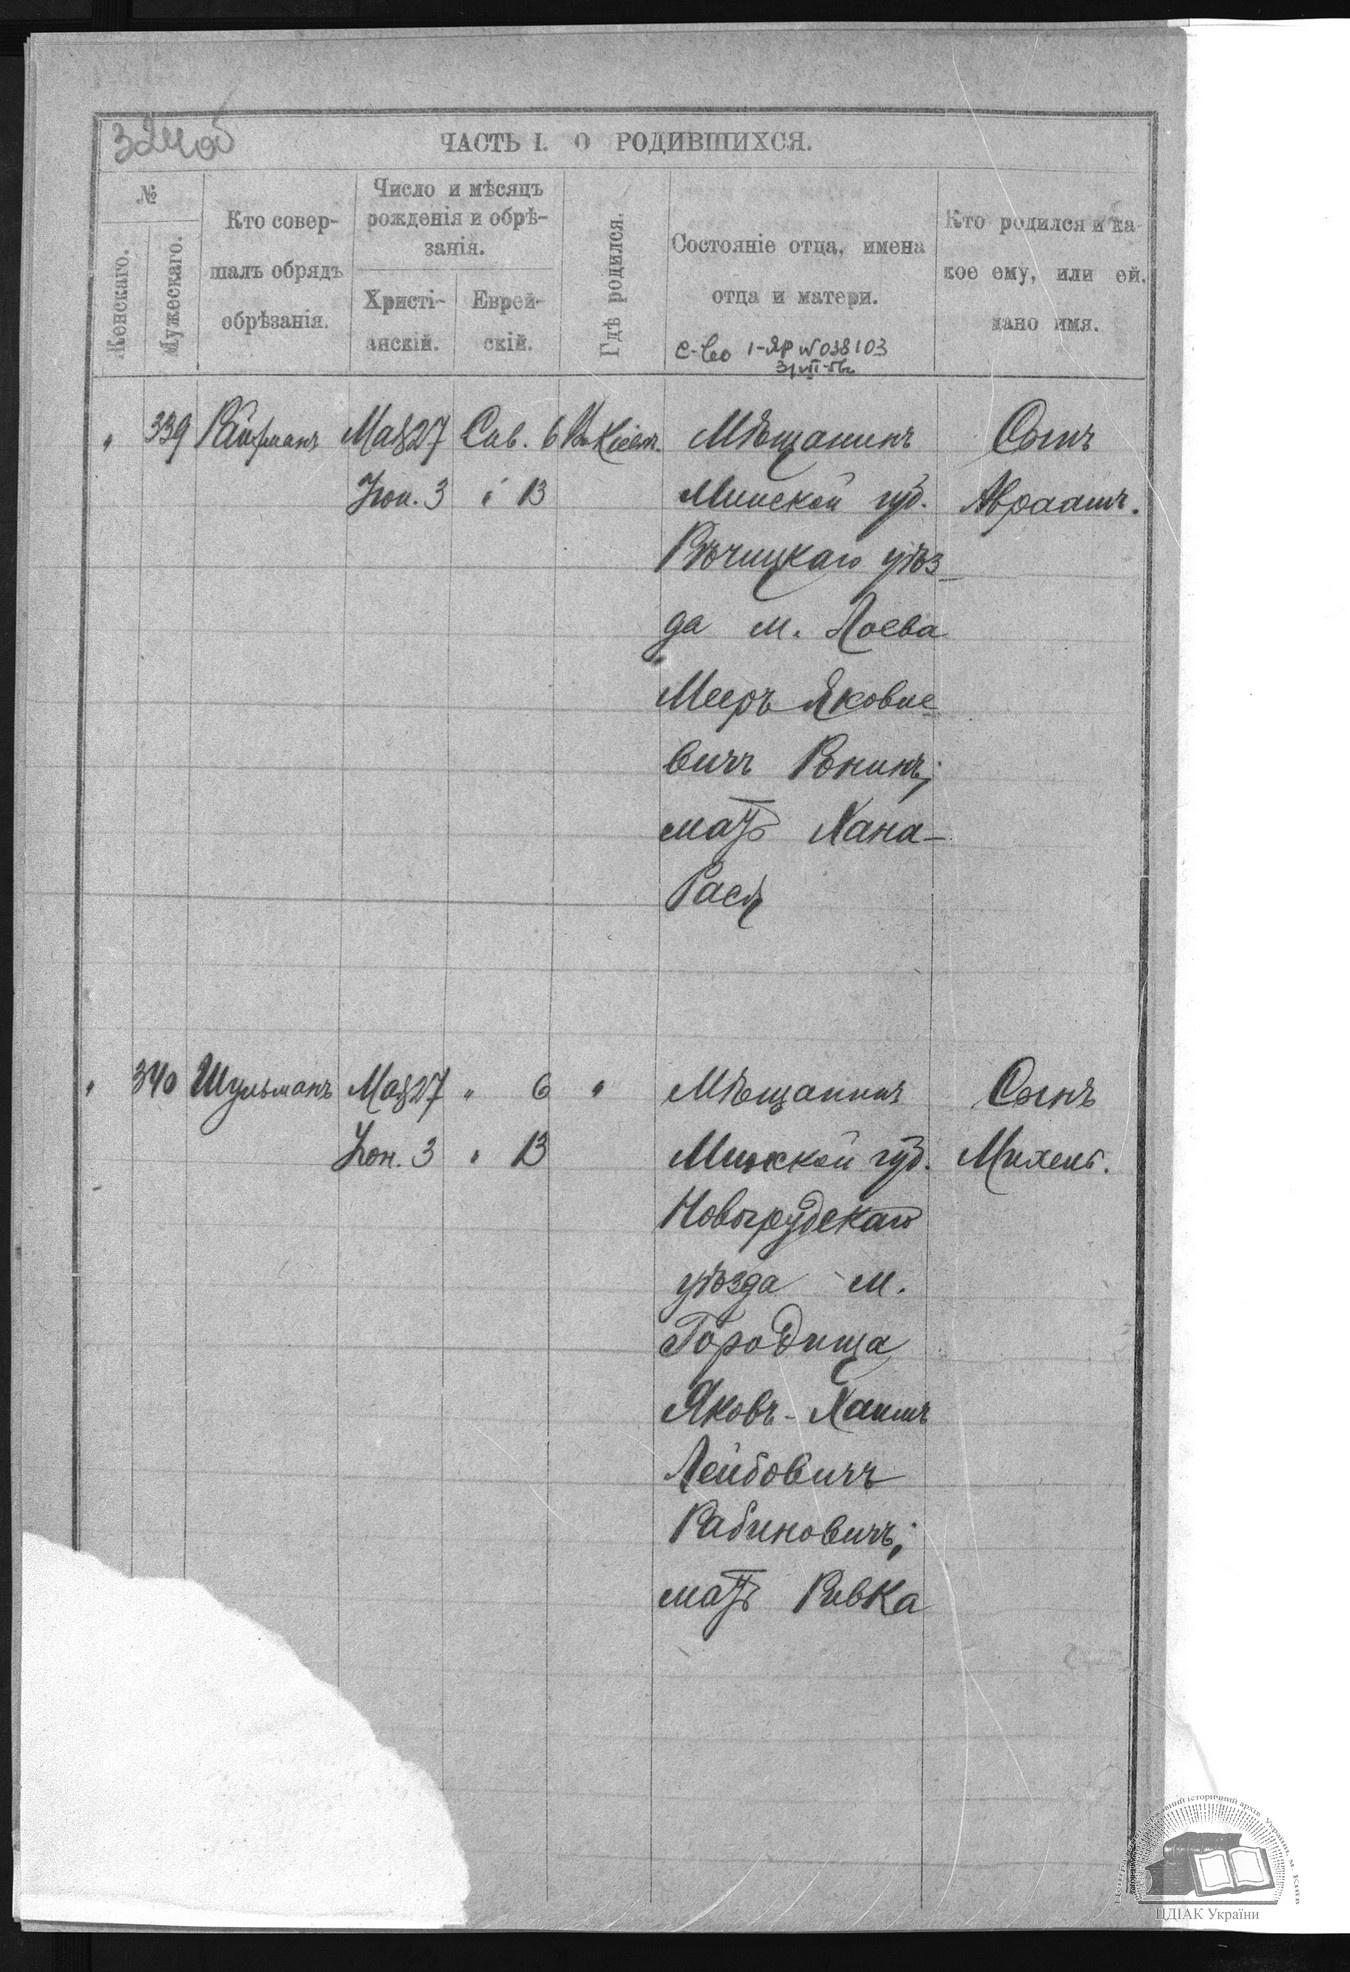 324об
ЧАСТЬ I. О РОДИВШИХСЯ.
№
Женскаго.
Мужескаго.
Кто совер-
шалъ обрядъ
обрѣзанія.
Число и мѣсяцъ
рожденія и обрѣ-
занія.
Христі-
анскій.
Еврей-
скій.
Гдѣ родился.
Состояніе отца, имена
отца и матери.
Кто родился и ка-
кое ему, или ей,
дано имя.
с-во 1-ЯР № 038103
" 339 Мая 27 Сив. 6 Въ Кіевѣ. Мѣщанинъ Сынъ
Іюн. 3 " 13 Минской губ. Авраамъ.
Рѣчицкаго уѣз-
да м. Лоева
Мееръ Яковле
вичъ Ронинъ;
мать Хана-
Рася
" 340 Шульманъ Мая 27 " 6 " Мѣщанинъ Сынъ
Іюн. 3 " 13 Минской губ. Михель.
Новогрудскаго
уѣзда м.
Городища
Яковъ-Хаимъ
Лейбовичъ
Рабиновичъ;
мать Ривка
ЦДІАК України